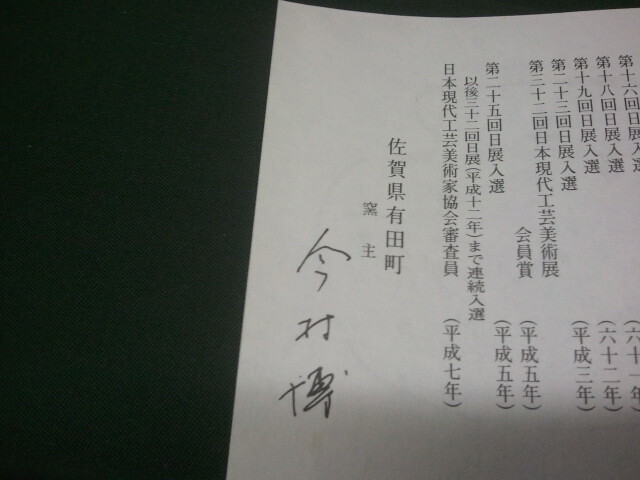 第十六回日展入選 (六十一年)
第十八回日展入選 (六十二年)
第十九回日展入選
第二十三回日展入選 (平成三年)
第三十二回日本現代工芸美術展
会員賞 (平成五年)
第二十五回日展入選 (平成五年)
以後三十二回日展(平成十二年)まで連続入選
日本現代工芸美術家協会審査員 (平成七年)
佐賀県有田町
窯主
今村博